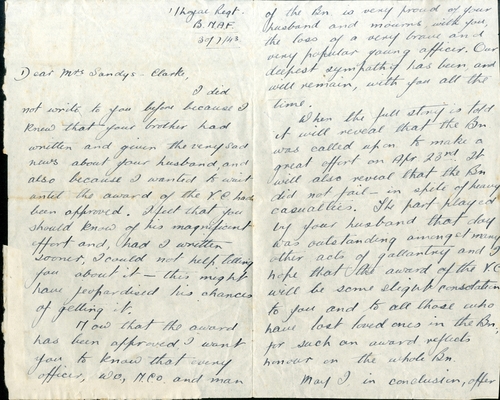 1/Loyal Regt.
B.N.A.F.
30/7/43.
Dear Mrs Sandys-Clarke,
I did
not write to you before because I
knew that your brother had
written and given the very sad
news about your husband, and
also because I wanted to wait
until the award of the V.C. had
been approved. I felt that you
should know of his magnificent
effort and, had I written
sooner, I could not help telling
you about it - this might
have jeopardised his chances
of getting it.
Now that the award
has been approved I want
you to know that every
officer, WO, NCO and man
of the Bn. is very proud of your
husband and mourns, with you,
the loss of a very brave and
very popular young officer. Our
deepest sympathy has been, and
will remain, with you all the
time.
When the full story is told
it will reveal that the Bn
was called upon to make a
great effort on Apr 23rd. It
will also reveal that the Bn
did not fail - in spite of heavy
casualties. The part played
by your husband that day
was outstanding amongst many
other acts of gallantry and I
hope that the award of the VC
will be some slight consolation
to you and to all those who
have lost loved ones in the Bn,
for such an award reflects
honour on the whole Bn.
May I in conclusion, offer